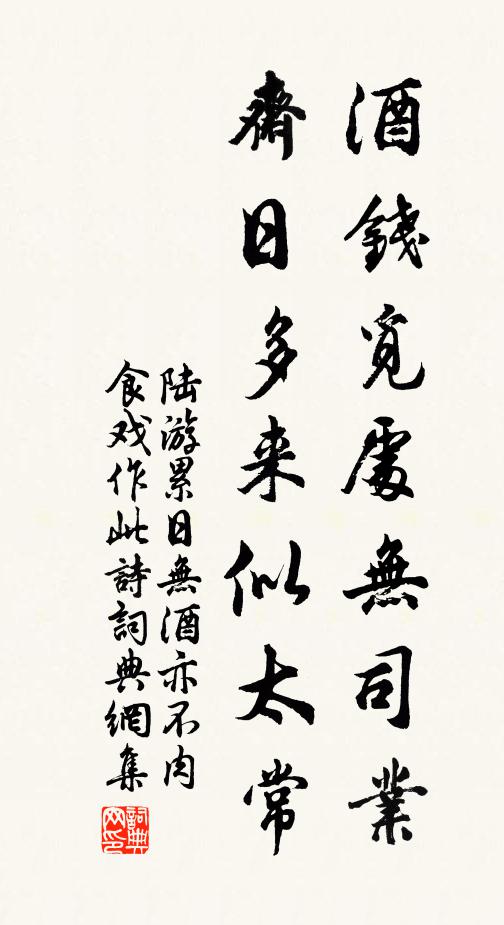 酒錢覓處無司業
齋日多来似太常
陆游累日無酒亦不肉
食戏作此詩詞典網集
詞典
网印